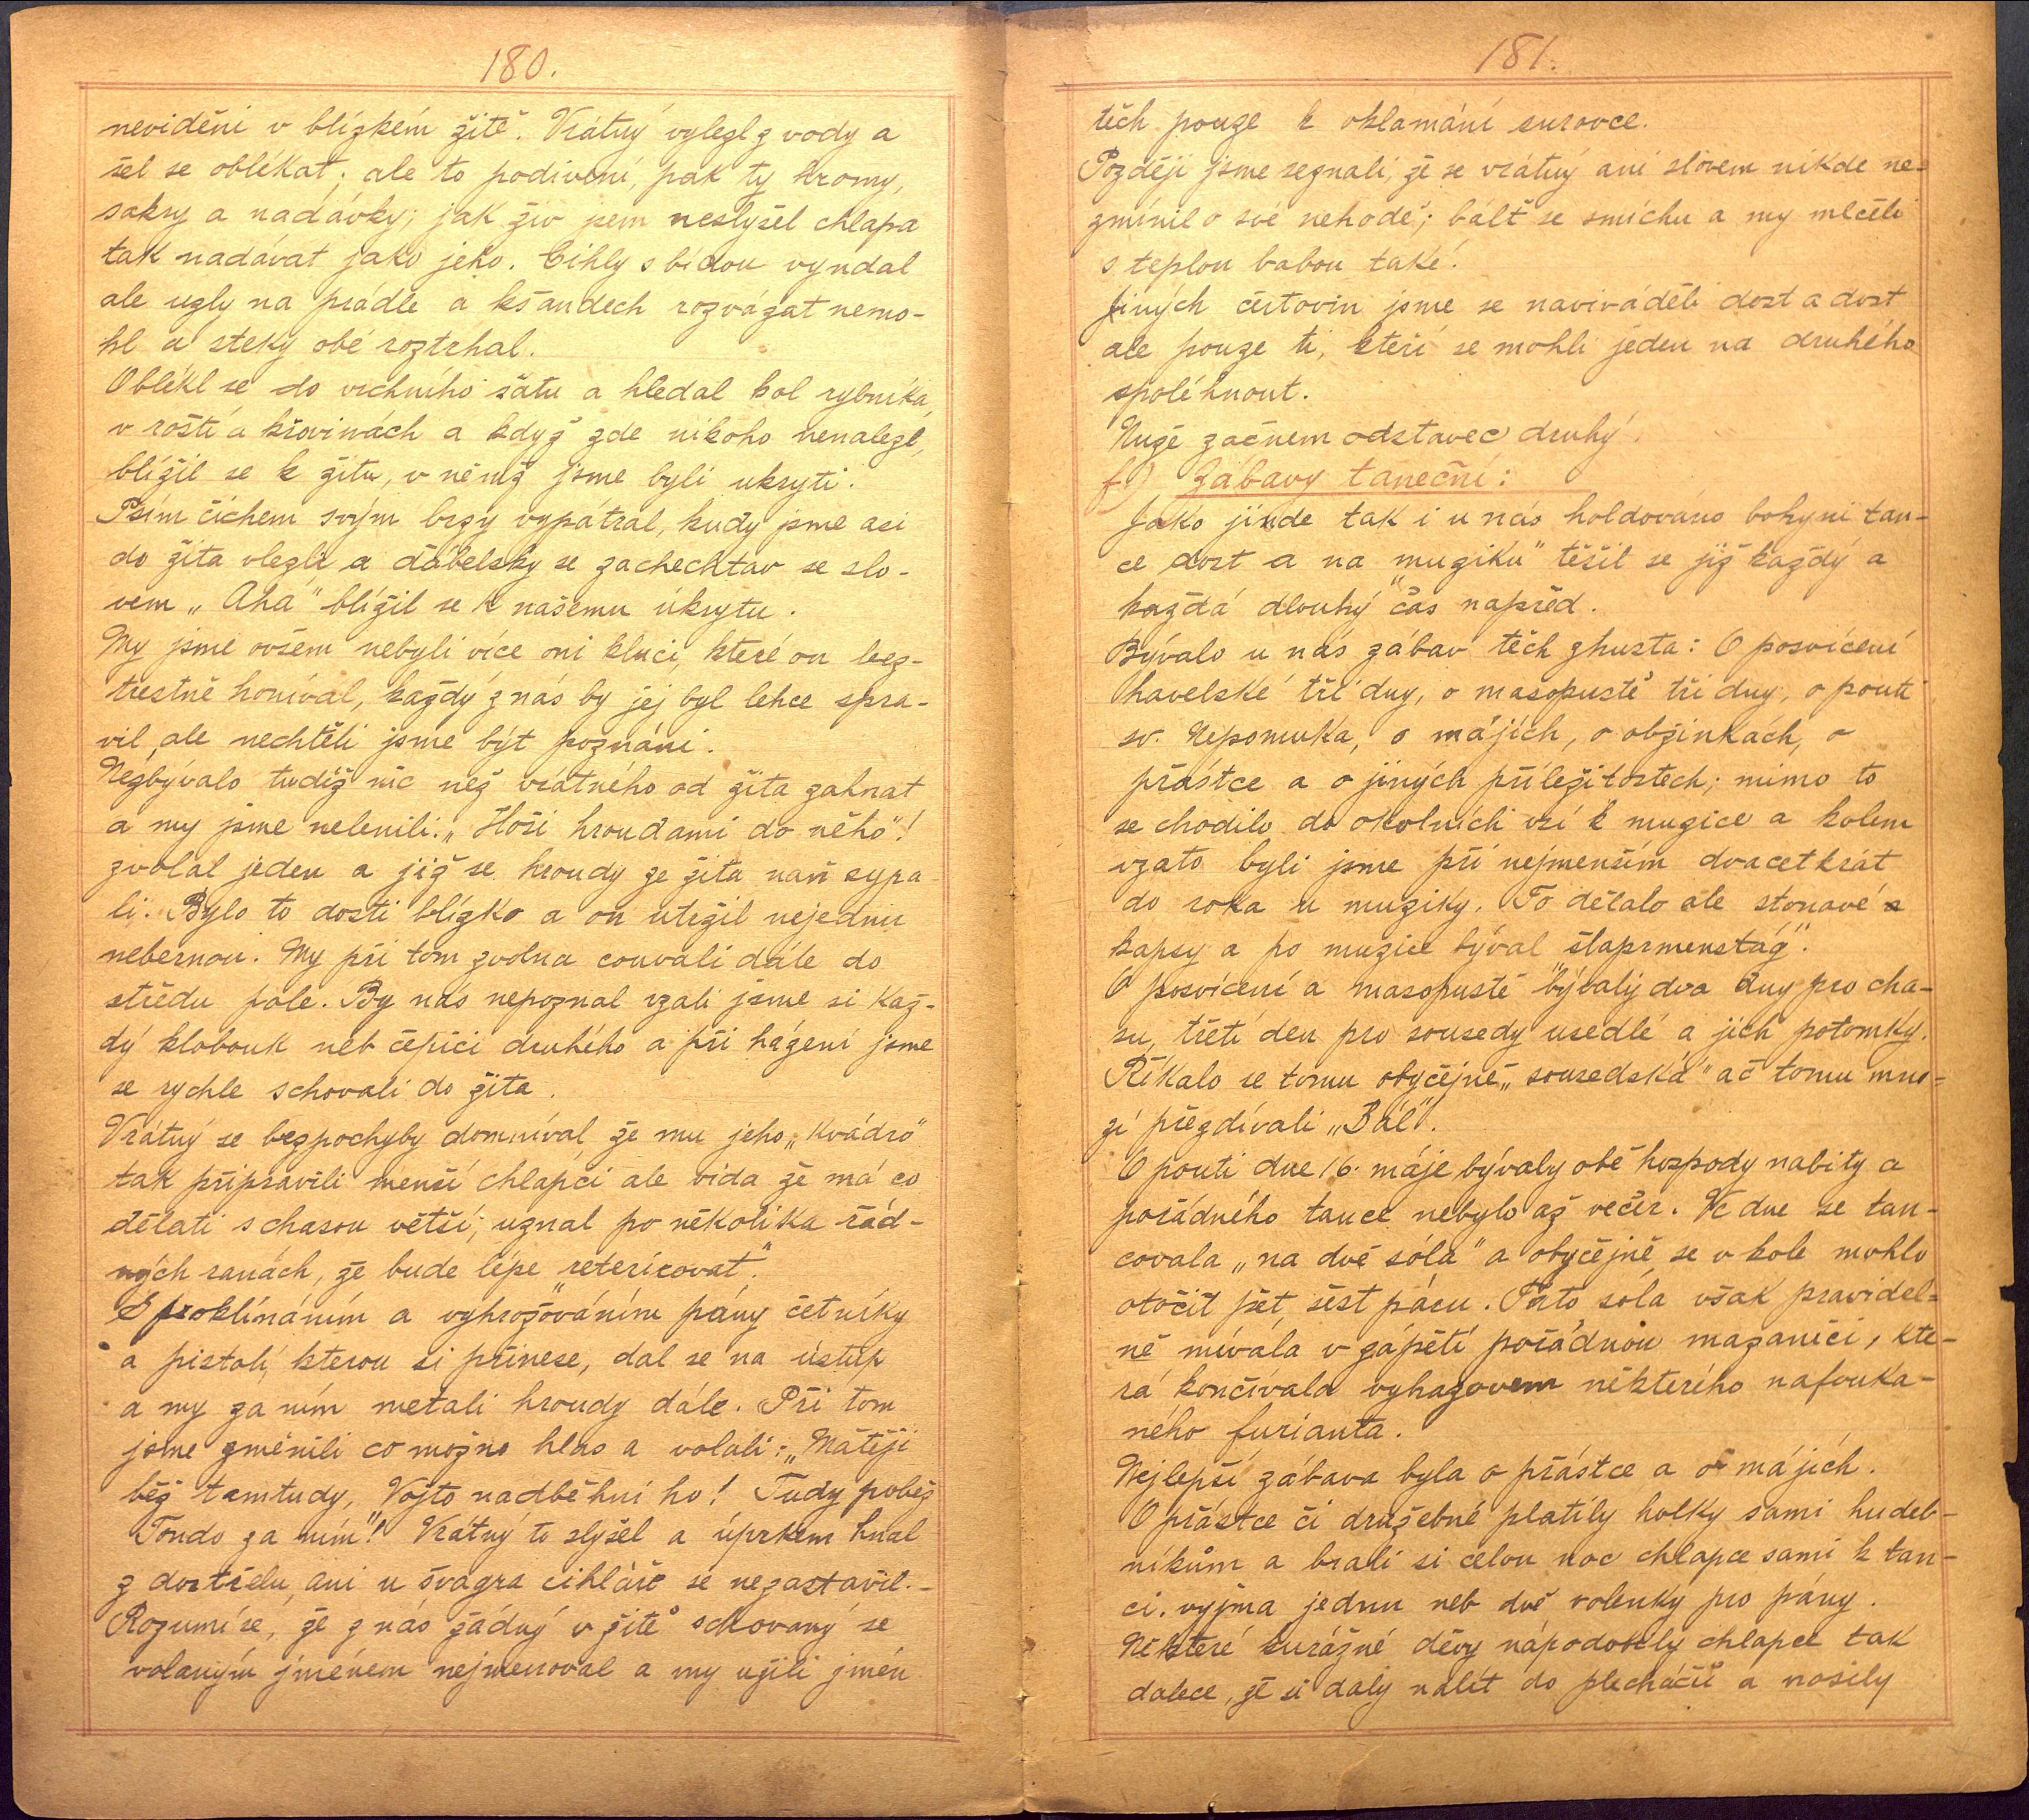 180.
neviděni v blízkém žitě. Vrátný vylezl z vody a
šel se oblékat; ale to podivení, pak ty hromy,
sakry a nadávky; jak živ jsem neslyšel chlapa
tak nadávat jako jeho. Cihly s bídou vyndal
ale uzly na prádle a kšandech rozvázat nemo-
hl a steky obé roztrhal.
Oblékl se do vrchního šatu a hledal kol rybníka,
v roští a křovinách a když zde nikoho nenalezl,
blížil se k žitu, v němž jsme byli ukryti.
Psím čichem svým brzy vypátral, kudy jsme asi
do žita vlezli a ďábelsky se zachechtav se slo-
vem „Aha" blížil se k našemu úkrytu.
My jsme ovšem nebyli více oni kluci, které on bez-
trestně honíval, každý z nás by jej byl lehce spra-
vil, ale nechtěli jsme být poznáni.
Nezbývalo tudíž nic než vrátného od žita zahnat
a my jsme nelenili. „Hoši hroudami do něho"!
zvolal jeden a již se hroudy ze žita naň sypa
li. Bylo to dosti blízko a on utežil nejednu
nebernou. My při tom zvolna couvali dále do
středu pole. By nás nepoznal vzali jsme si kaž-
dý klobouk neb čepici druhého a při házení jsme
se rychle schovali do žita.
Vrátný se bezpochyby domníval že mu jeho „kvádro"
tak připravili menší chlapci ale vida že má co
dělati s chasou větší; uznal po několika řád-
ných ranách, že bude lépe „reterírovat".
S proklínáním a vyhrožováním pány četníky
a pistolí, kterou si přinese, dal se na ústup
a my za ním metali hroudy dále. Při tom
jsme změnili co možno hlas a volali: „Matěji
běž tamtudy, Vojto nadběhni ho! Tudy poběž
Tondo za ním"! Vrátný to slyšel a úprkem hnal
z dostřelu, ani u švagra cihláře se nezastavil.-
Rozumí se, že z nás žádný v žitě schovaný se
volaným jménem nejmenoval a my užili jmén
181.
těch pouze k oklamání surovce.
Později jsme seznali, že se vrátný ani slovem nikde ne-
zmínil o své nehodě; bálť se smíchu a my mlčeli
s teplou babou také.
Jiných čertovin jsme se naviváděli dost a dost
ale pouze ti, kteří se mohli jeden na druhého
spoléhnout.
Nuže začnem odstavec druhý.
f.) Zábavy taneční:
Jako jinde tak i u nás holdováno bohyni tan-
ce dost a na „muziku" těšil se již každý a
každá dlouhý čas napřed.
Bývalo u nás zábav těch zhusta: O posvícení
havelské tři dny, o masopustě tři dny, o pouti
sv. Nepomuka, o májích, o obžinkách, o
přástce a o jiných příležitostech; mimo to
se chodilo do okolních vsí k muzice a kolem
vzato byli jsme při nejmenším dvacetkrát
do roka u muziky. To dělalo ale stonavé
kapsy a po muzice býval „šlaprmenstág".
O posvícení a masopustě bývaly dva dny pro cha-
su, třetí den pro sousedy usedlé a jich potomky.
Říkalo se tomu obyčejně „sousedská" ač tomu mno-
zí přezdívali „Bál".
O pouti dne 16. máje bývaly obě hospody nabity a
pořádného tance nebylo až večer. Ve dne se tan-
covala „na dvě sóla" a obyčejně se v kole mohlo
otočit pět, šest párů. Tato sóla však pravidel-
ně mívala v zápětí pořádnou mazanici, kte-
rá končívala vyhazovem některého nafouka-
ného furianta.
Nejlepší zábava byla o přástce a o májích.
O přástce či družebné platily holky sami hudeb-
níkům a brali si celou noc chlapce sami k tan-
ci, vyjma jednu neb dvě volenky pro pány.
Některé kurážné děvy nápodobily chlapce tak
dalece, že si daly nalít do plecháčů a nosily